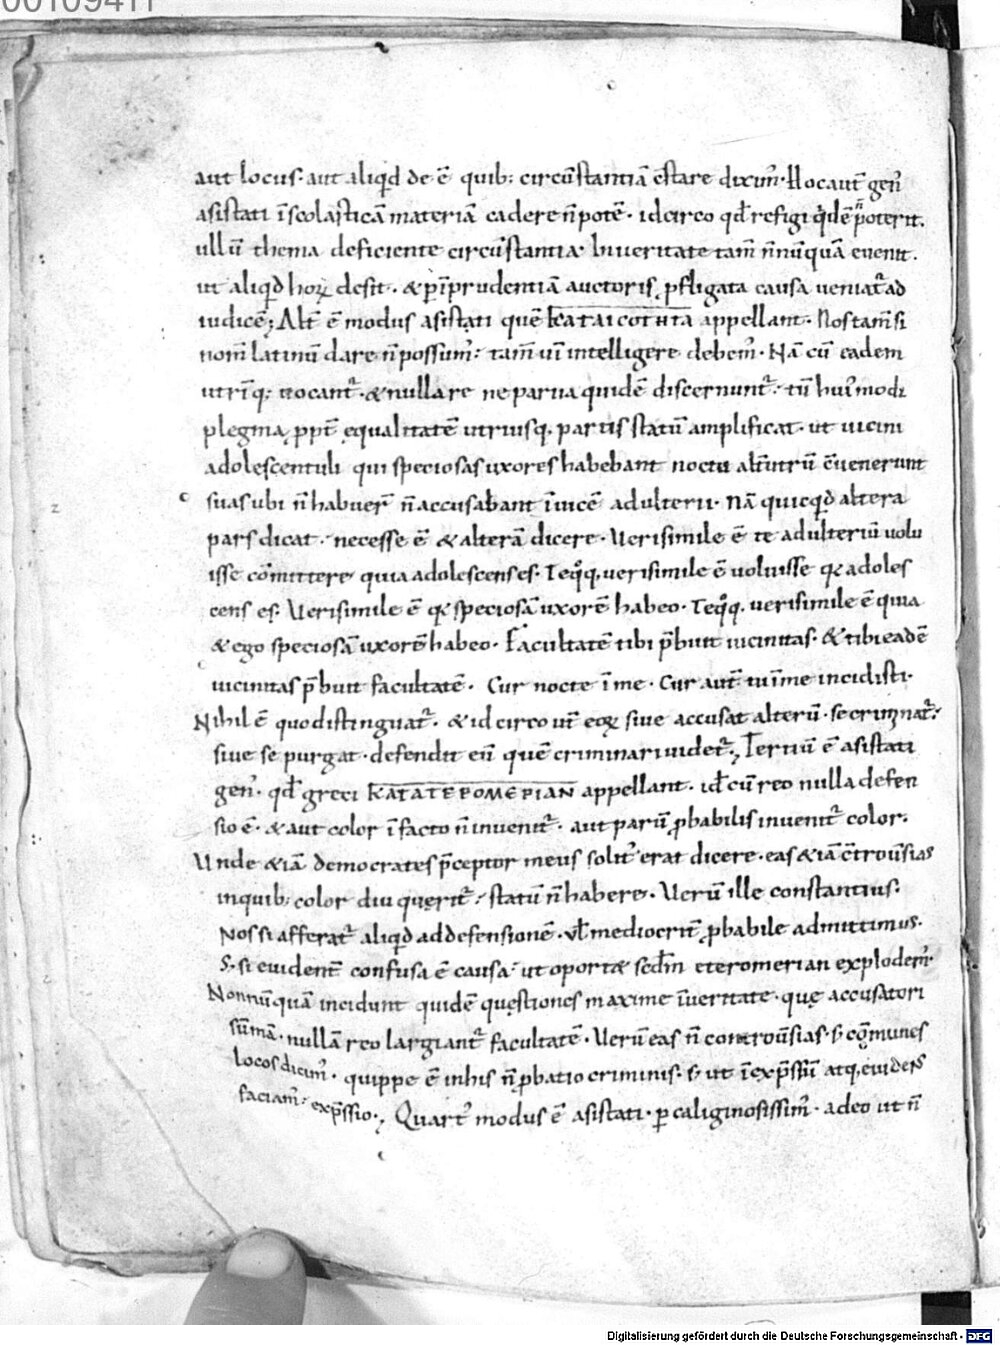 00109411
aut locus· aut aliqd de ē quib; circūstantiā cstare dixim᷒· Hoc aut̄ gen᷒
asistati īscolasticā materiā cadere n̄ potē· idcirco qd̄ refigi qdē poterit.
ullū thema deficiente circūstantia· In ueritate tam̄ n̄nūquā euenit.
ut aliqd hoꝝ desit· & p īprudentiā auctoris ꝓfligata causa ueniat᷑ ad
iudicē; Alt̄ ē modus asistati quē KATAICOTHTA appellant· Nos tam̄ si
nom̄ latinū dare n̄ possum᷒· tam̄ uī intelligere debem᷒· Nā cū eadem
utrīq; uocant᷑· & nulla re ne parua quidē discernunt᷑· tū hui᷒modi
plegma ꝓpt̄ ęqualitatē utriusq, partis statū amplificat· ut uicini
adolescentuli qui speciosas uxores habebant noctu alt̄utrū c̄uenerunt
suas ubi n̄ habuer̄ n̄ accusabant īuicē adulterii· Nā quicqd altera
pars dicat· necesse ē & alterā dicere· Uerisimile ē te adulteriū uolu
isse cōmittere quia adolescens es· Teqq, uerisimile ē uoluisse qa adoles
cens es· Uerisimile ē qa speciosā uxorē habeo· Teqq, uerisimile ē quia
& ego speciosā uxorē habeo· Facultatē tibi p̄buit uicinitas· & tibi eadē
uicinitas p̄buit facultatē· Cur nocte ī me· Cur aut̄ tu ī me incidisti·
Nihil ē quo distinguat᷑· & idcirco ut̄ eoꝝ siue accusat alterū· se criminat᷑·
siue se purgat· defendit eū quē criminari uidet᷑; Tertiū ē asistati
gen᷒· qd̄ greci KATATEPOMEPIAN appellant· id̄ cū reo nulla defen
sio ē· & aut color ī facto n̄ inuenit᷑· aut parū ꝓbabilis inuenit᷑ color·
Unde & iā democrates p̄ceptor meus solit᷒ erat dicere· eas & iā c̄trouersias
inquib; color diu querit᷑· statū n̄ habere· Uerū ille constantius·
Nos si afferat᷑ aliqd ad defensionē· ul̄ mediocrit̄ ꝓbabile admittimus·
S· si euident̄ confusa ē causa· ut oport& sedm̄ eteromerian explodem᷒·
Nonnūquā incidunt quidē quęstiones maxime īueritate· quę accusatori
sūmā· nullā reo largiant᷑ facultatē· Uerū eas n̄ controūsias· s; cōmunes
locos dicim᷒· quippe ē inhis n̄ ꝓbatio criminis· s; ut īexp̄ssū atq, euidens
faciam᷒· exp̄ssio; Quart᷒ modus ē asistati· ꝑ caliginosissim᷒· adeo ut n̄
Digitalisierung gefördert durch die Deutsche Forschungsgemeinschaft - DFG